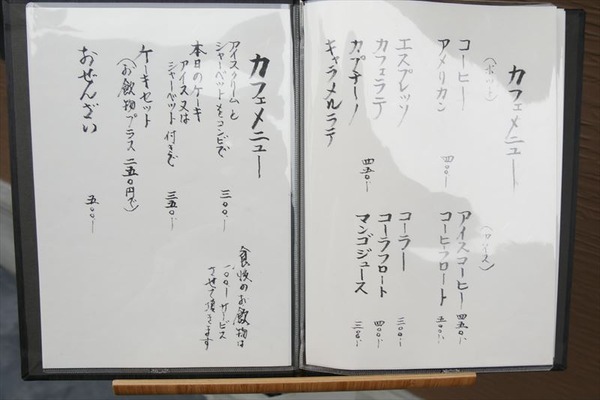 カフェメニュー
(ホット)
コーヒー
アメリカン 四〇〇、
エスプレッソ
カフェラテ
カプチーノ 四五〇、
キャラメルラテ
(アイス)
アイスコーヒー 四五〇、
コーヒーフロート 五〇〇、
コーラー 三〇〇、
コーラフロート 四〇〇、
マンゴジュース 三〇〇、
カフェメニュー
アイスクリームと
シャーベットをコンビで 三〇〇、
本日のケーキ
アイス又は
シャーベット付きで 三五〇、
ケーキセット
(お飲物プラス二五〇円で)
おぜんざい 五〇〇、
食後のお飲物は
一〇〇、サービス
させて頂きます